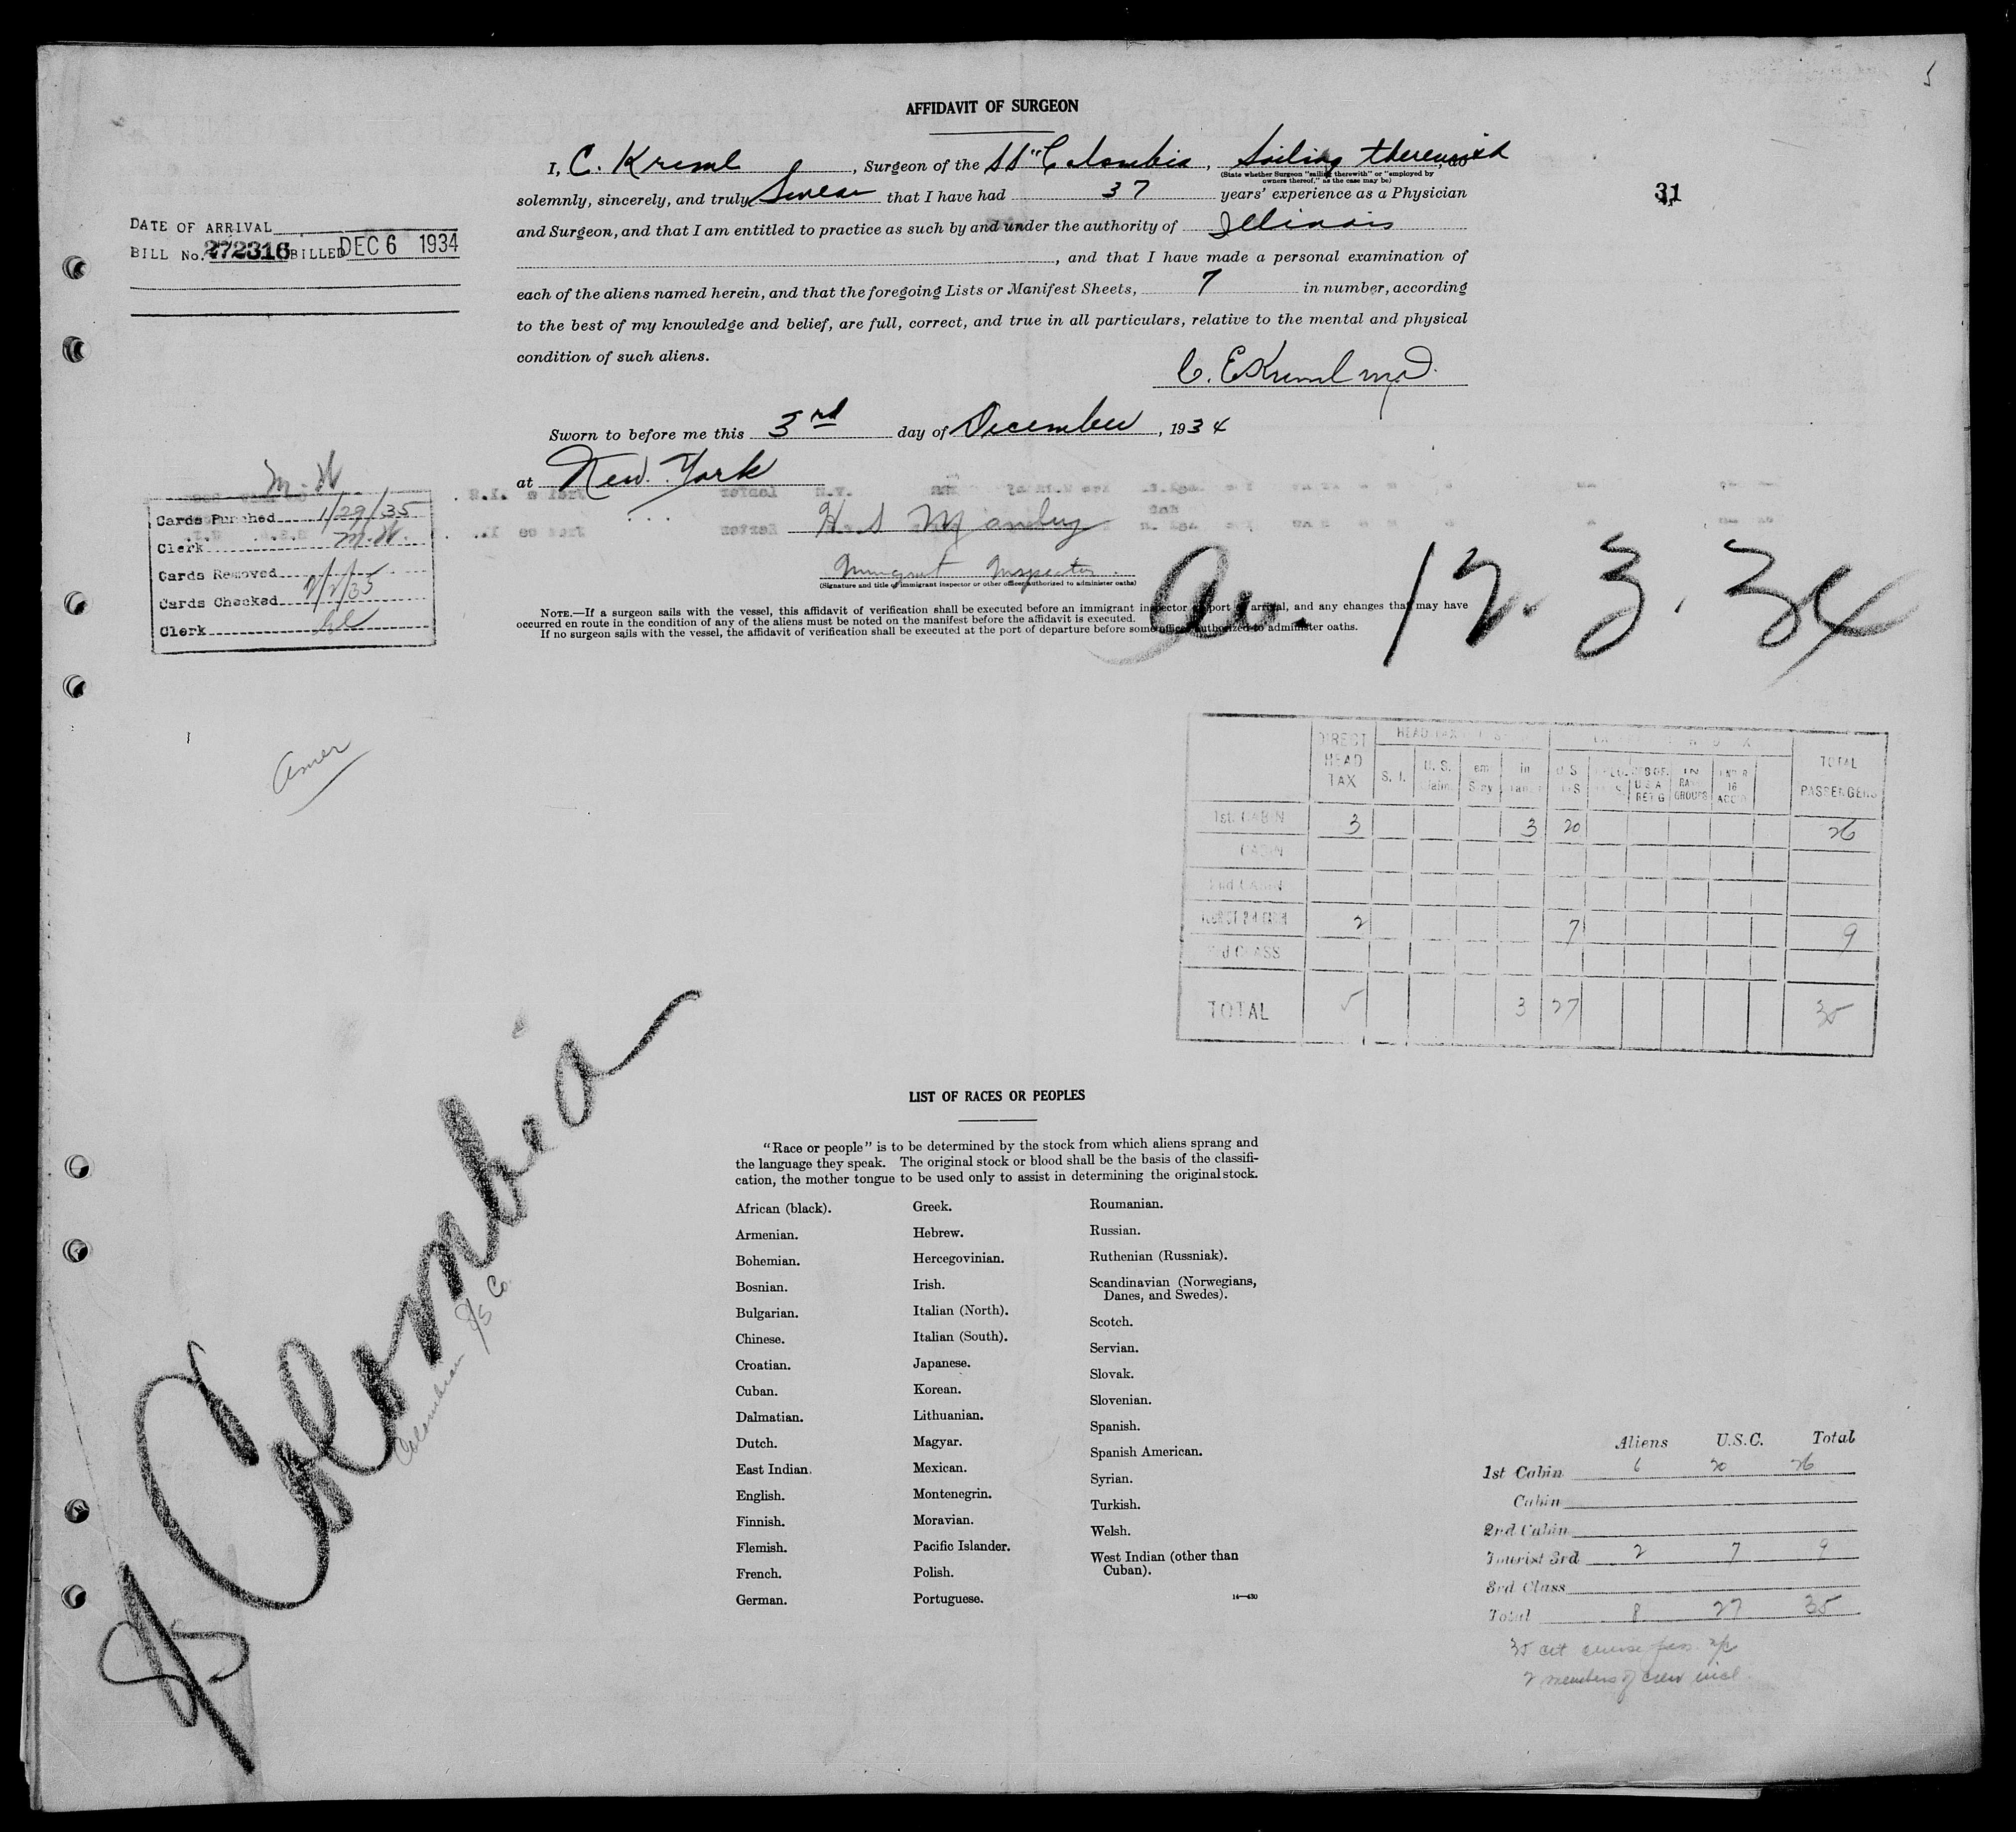 AFFIDAVIT OF SURGEON
I, C. Kreml, Surgeon of the SS "Colombia, Sailing therewith, do
(State whether Surgeon "sailing therewith" or "employed by
owners thereof," as the case may be)
solemnly, sincerely, and truly Swear that I have had 37 years' experience as a Physician
31
and Surgeon, and that I am entitled to practice as such by and under the authority of Illinois
, and that I have made a personal examination of
each of the aliens named herein, and that the foregoing Lists or Manifest Sheets, 7 in number, according
to the best of my knowledge and belief, are full, correct, and true in all particulars, relative to the mental and physical
condition of such aliens.
C. E Kreml M.D.
DATE OF ARRIVAL
BILL No. 272316 BILLED DEC 6 1934
Sworn to before me this 3rd day of December, 1934
at New York
H S Manley
Immigrant Inspector.
(Signature and title of immigrant inspector or other officer authorized to administer oaths)
M.W
Cards Punched 1/29/35
Clerk M.W.
Cards Removed
Cards Checked 2/1/35
Clerk
NOTE.—If a surgeon sails with the vessel, this affidavit of verification shall be executed before an immigrant inspector at port of arrival, and any changes that may have
occurred en route in the condition of any of the aliens must be noted on the manifest before the affidavit is executed.
If no surgeon sails with the vessel, the affidavit of verification shall be executed at the port of departure before some officer authorized to administer oaths.
Arr. 12.3.34
Amer
DIRECT HEAD TAX
HEAD TAX
S. I.
U. S.
in
U S
IN GROUPS
TOTAL PASSENGERS
1st. CABIN 3 3 20 26
CABIN
2nd CABIN
TOURIST 3rd CABIN 2 7 9
3rd CLASS
TOTAL 5 3 27 35
SS Colombia
Colombian S/S Co.
LIST OF RACES OR PEOPLES
"Race or people" is to be determined by the stock from which aliens sprang and
the language they speak. The original stock or blood shall be the basis of the classifi-
cation, the mother tongue to be used only to assist in determining the original stock.
African (black).
Armenian.
Bohemian.
Bosnian.
Bulgarian.
Chinese.
Croatian.
Cuban.
Dalmatian.
Dutch.
East Indian.
English.
Finnish.
Flemish.
French.
German.
Greek.
Hebrew.
Hercegovinian.
Irish.
Italian (North).
Italian (South).
Japanese.
Korean.
Lithuanian.
Magyar.
Mexican.
Montenegrin.
Moravian.
Pacific Islander.
Polish.
Portuguese.
Roumanian.
Russian.
Ruthenian (Russniak).
Scandinavian (Norwegians,
Danes, and Swedes).
Scotch.
Servian.
Slovak.
Slovenian.
Spanish.
Spanish American.
Syrian.
Turkish.
Welsh.
West Indian (other than
Cuban).
14—430
Aliens U.S.C. Total
1st Cabin 6 20 26
Cabin
2nd Cabin
Tourist 3rd 2 7 9
3rd Class
Total 8 27 35
35 cruise pass.
2 members of crew incl.